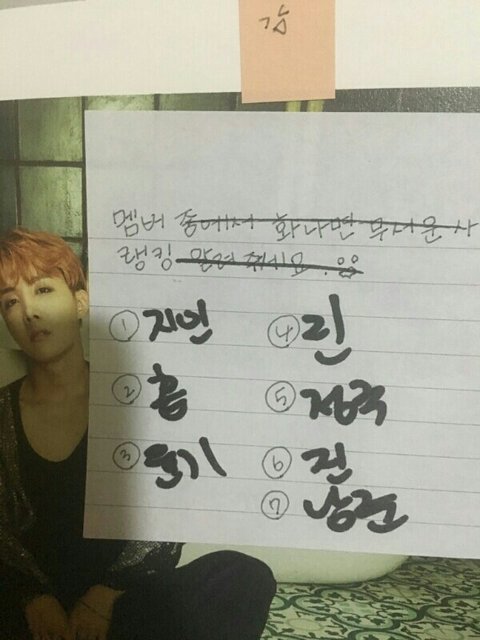 감
멤버 중에서 화나면 무서운 사
랭킹 알려줘세요.
① 지민
② 홉
③ 윤기
④ 린
⑤ 정국
⑥ 진
⑦ 남준